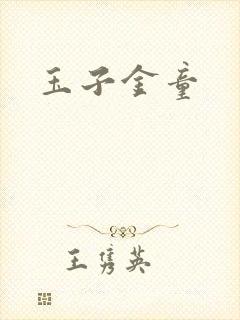 玉子金童
王隽英